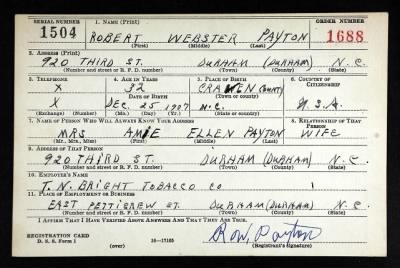 SERIAL NUMBER 1. NAME (Print) ORDER NUMBER
1504 ROBERT WEBSTER PAYTON 1688
(First) (Middle) (Last)
2. ADDRESS (Print)
920 THIRD ST. DURHAM (DURHAM) N.C.
(Number and street or R. F. D. number) (Town) (County) (State)
3. TELEPHONE 4. AGE IN YEARS 5. PLACE OF BIRTH 6. COUNTRY OF CITIZENSHIP
X 32 CRAVEN (County)
DATE OF BIRTH
X DEC. 25 1907 N.C. U.S.A.
(Exchange) (Number) (Mo.) (Day) (Yr.) (State or country)
7. NAME OF PERSON WHO WILL ALWAYS KNOW YOUR ADDRESS 8. RELATIONSHIP OF THAT PERSON
MRS AMIE ELLEN PAYTON WIFE
(Mr., Mrs., Miss) (First) (Middle) (Last)
9. ADDRESS OF THAT PERSON
920 THIRD ST. DURHAM (DURHAM) N.C.
(Number and street or R. F. D. number) (Town) (County) (State)
10. EMPLOYER'S NAME
T. N. BRIGHT TOBACCO CO
11. PLACE OF EMPLOYMENT OR BUSINESS
EAST PETTIGREW ST. DURHAM (DURHAM) N.C.
(Number and street or R. F. D. number) (Town) (County) (State)
I AFFIRM THAT I HAVE VERIFIED ABOVE ANSWERS AND THAT THEY ARE TRUE.
REGISTRATION CARD
D. S. S. Form 1 (over) 16-17105 (Registrant's signature)
R.W. Payton